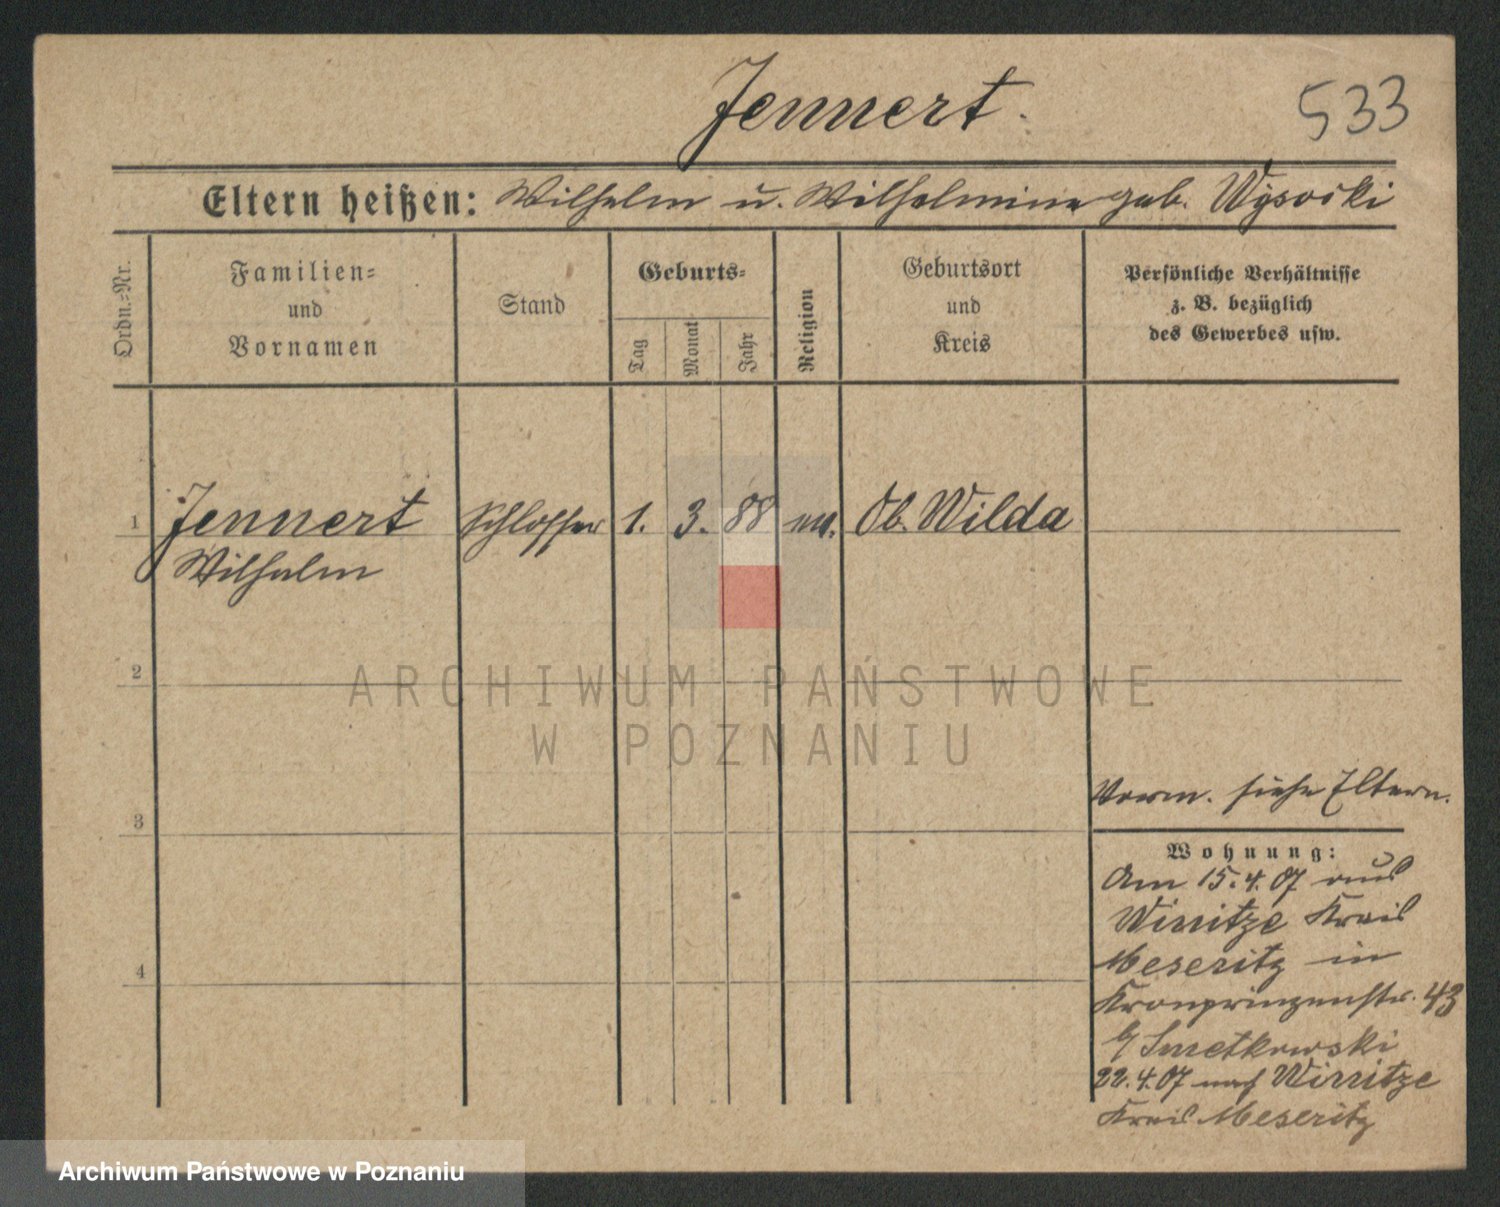 Jennert.
533
Eltern heißen: Wilhelm u. Wilhelmine geb. Wysocki
Ordn.=Nr.
Familien=
und
Vornamen
Stand
Geburts=
Tag
Monat
Jahr
Religion
Geburtsort
und
Kreis
Persönliche Verhältnisse
z. B. bezüglich
des Gewerbes usw.
1
Jennert
Schlosser
1.
3.
88
Ob. Wilda
Wilhelm
2
ARCHIWUM PAŃSTWOWE
W POZNANIU
3
4
Vorm. siehe Eltern.
Wohnung:
Am 15.4.07 aus
Kreis
Meseritz in
Kronprinzenstr. 43
b/ Smetkowski
22.4.07 nach
Kreis Meseritz
Archiwum Państwowe w Poznaniu